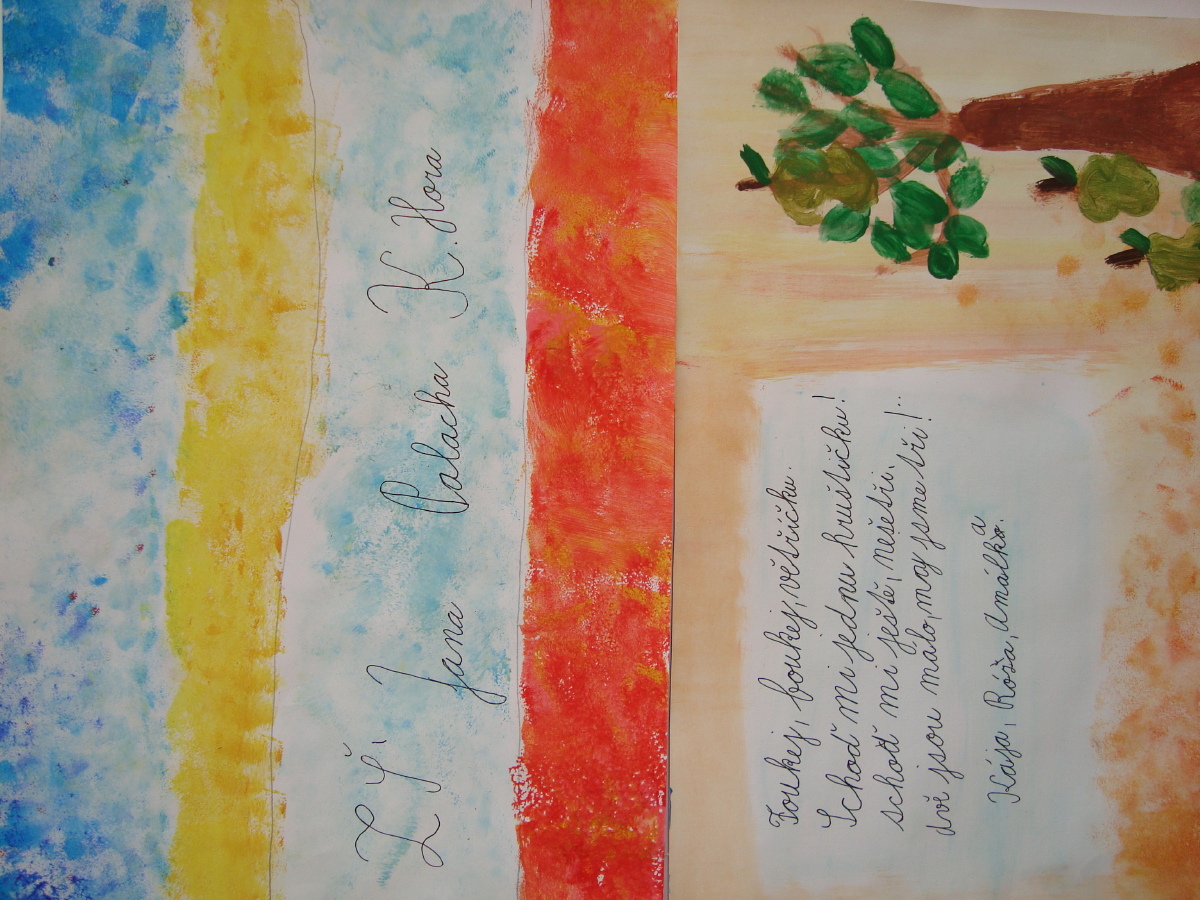 ZŠ, Jana Palacha K. Hora
Foukej, foukej, větříčku.
Schoď mi jednu hruštičku!
schoď mi ještě, nešetři,
dvě jsou málo, my jsme tři!..
Kája, Róža, Amálka.
a